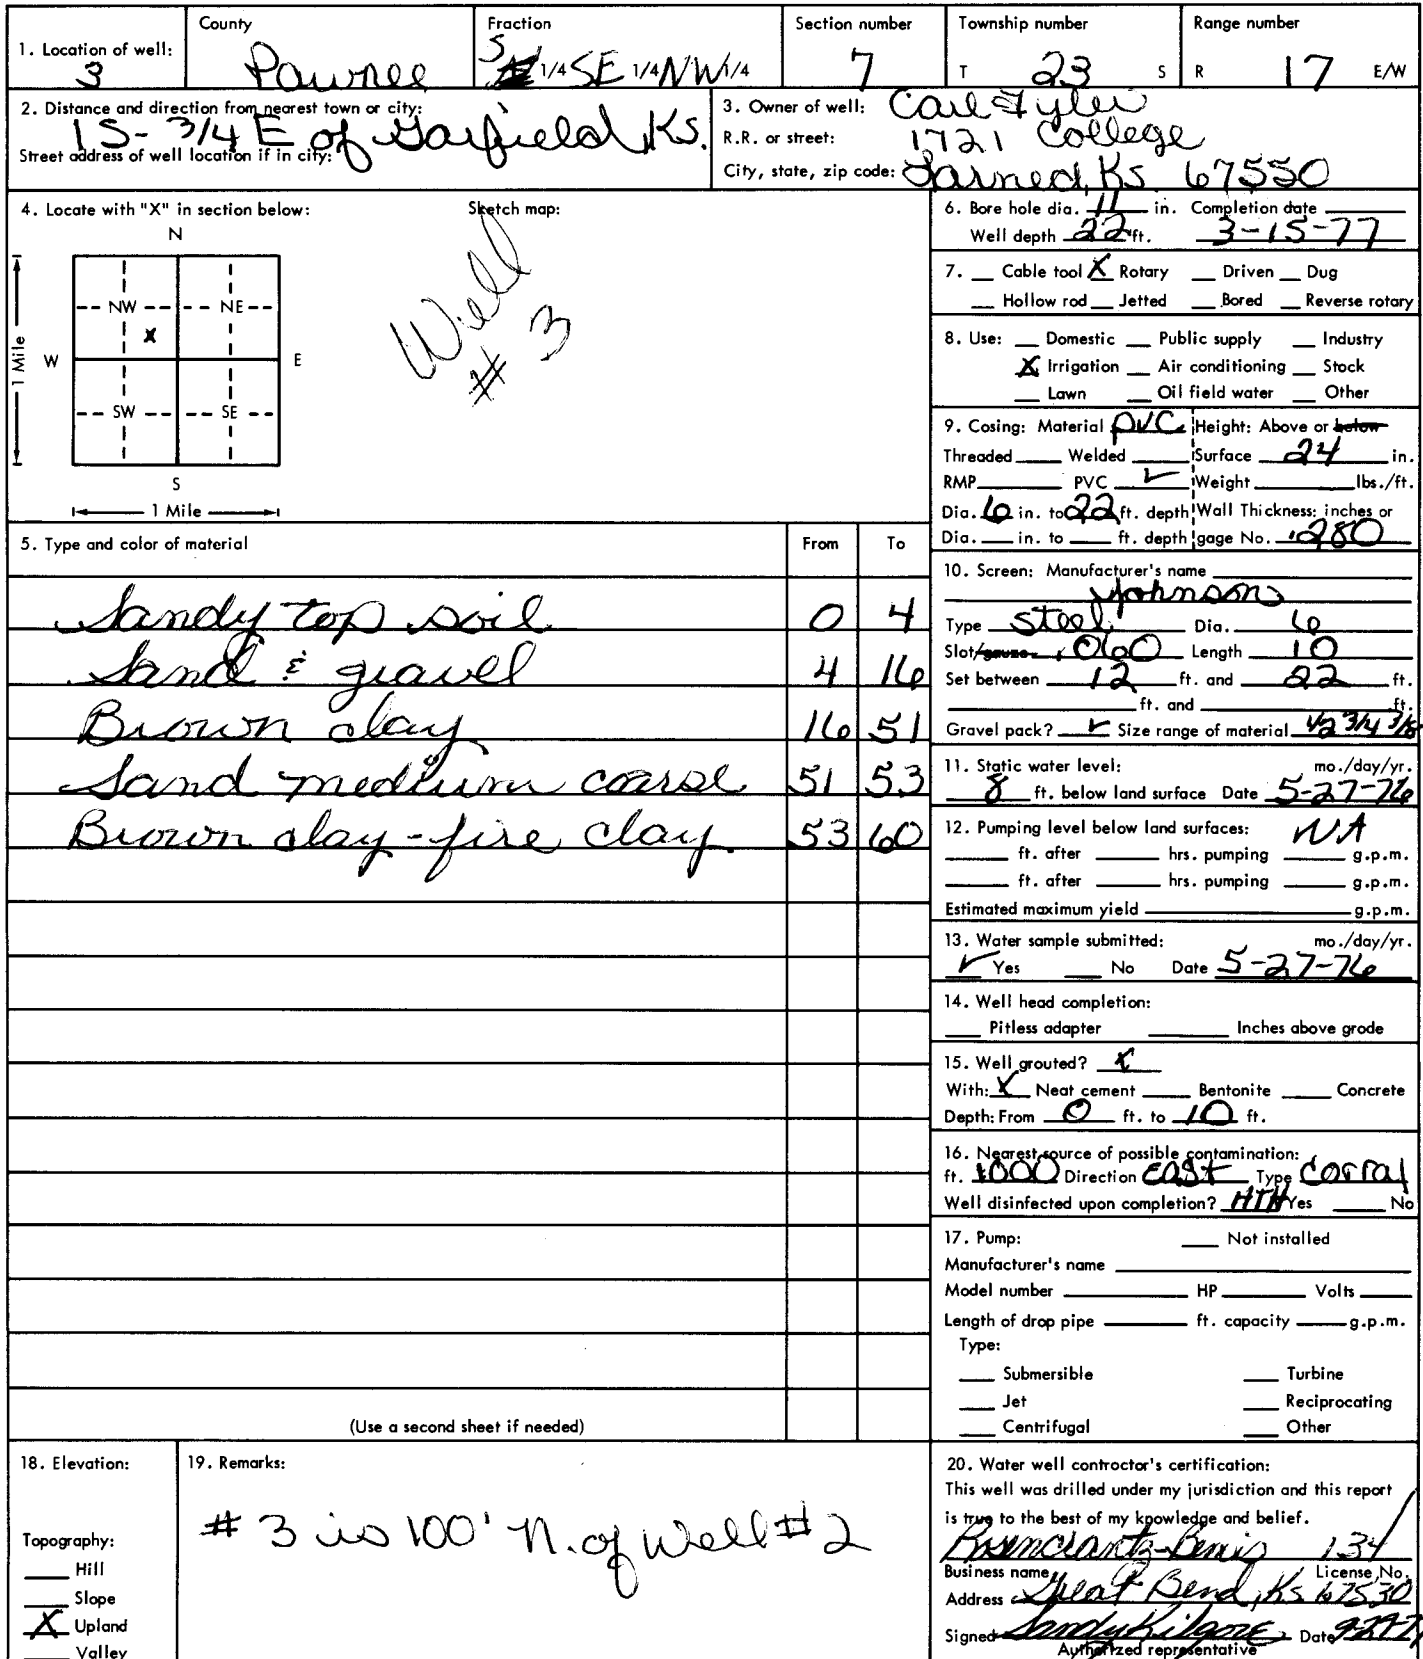 1. Location of well: 3
County Pawnee
Fraction S 1/4 SE 1/4 NW 1/4
Section number 7
Township number T 23 S
Range number R 17 E/W
2. Distance and direction from nearest town or city:
1S - 3/4 E of Garfield, Ks.
Street address of well location if in city:
3. Owner of well: Carl Tyler
R.R. or street: 1721 College
City, state, zip code: Larned, Ks. 67550
4. Locate with "X" in section below:
N
NW NE
X
W E
SW SE
S
1 Mile
1 Mile
Sketch map:
Well
# 3
5. Type and color of material From To
Sandy top soil 0 4
Sand & gravel 4 16
Brown clay 16 51
Sand medium coarse 51 53
Brown clay - fire clay 53 60
(Use a second sheet if needed)
6. Bore hole dia. 11 in. Completion date
Well depth 22 ft. 3-15-77
7. Cable tool X Rotary Driven Dug
Hollow rod Jetted Bored Reverse rotary
8. Use: Domestic Public supply Industry
X Irrigation Air conditioning Stock
Lawn Oil field water Other
9. Cosing: Material PVC Height: Above or below
Threaded Welded Surface 24 in.
RMP PVC ✓ Weight lbs./ft.
Dia. 6 in. to 22 ft. depth Wall Thickness: inches or
Dia. in. to ft. depth gage No. .280
10. Screen: Manufacturer's name
Johnson
Type Steel Dia. 6
Slot/gauze .060 Length 10
Set between 12 ft. and 22 ft.
ft. and ft.
Gravel pack? ✓ Size range of material 1/2 3/4 3/8
11. Static water level: mo./day/yr.
8 ft. below land surface Date 5-27-76
12. Pumping level below land surfaces: NA
ft. after hrs. pumping g.p.m.
ft. after hrs. pumping g.p.m.
Estimated maximum yield g.p.m.
13. Water sample submitted: mo./day/yr.
✓ Yes No Date 5-27-76
14. Well head completion:
Pitless adapter Inches above grade
15. Well grouted? X
With: X Neat cement Bentonite Concrete
Depth: From 0 ft. to 10 ft.
16. Nearest source of possible contamination:
ft. 1000 Direction east Type corral
Well disinfected upon completion? HTH Yes No
17. Pump: Not installed
Manufacturer's name
Model number HP Volts
Length of drop pipe ft. capacity g.p.m.
Type:
Submersible Turbine
Jet Reciprocating
Centrifugal Other
18. Elevation:
Topography:
Hill
Slope
X Upland
Valley
19. Remarks:
# 3 is 100' N. of Well # 2
20. Water well controctor's certification:
This well was drilled under my jurisdiction and this report
is true to the best of my knowledge and belief.
Rosencrantz-Bemis 134
Business name License No.
Address Great Bend, Ks 67530
Signed Sandy Kilgore Date
Authorized representative